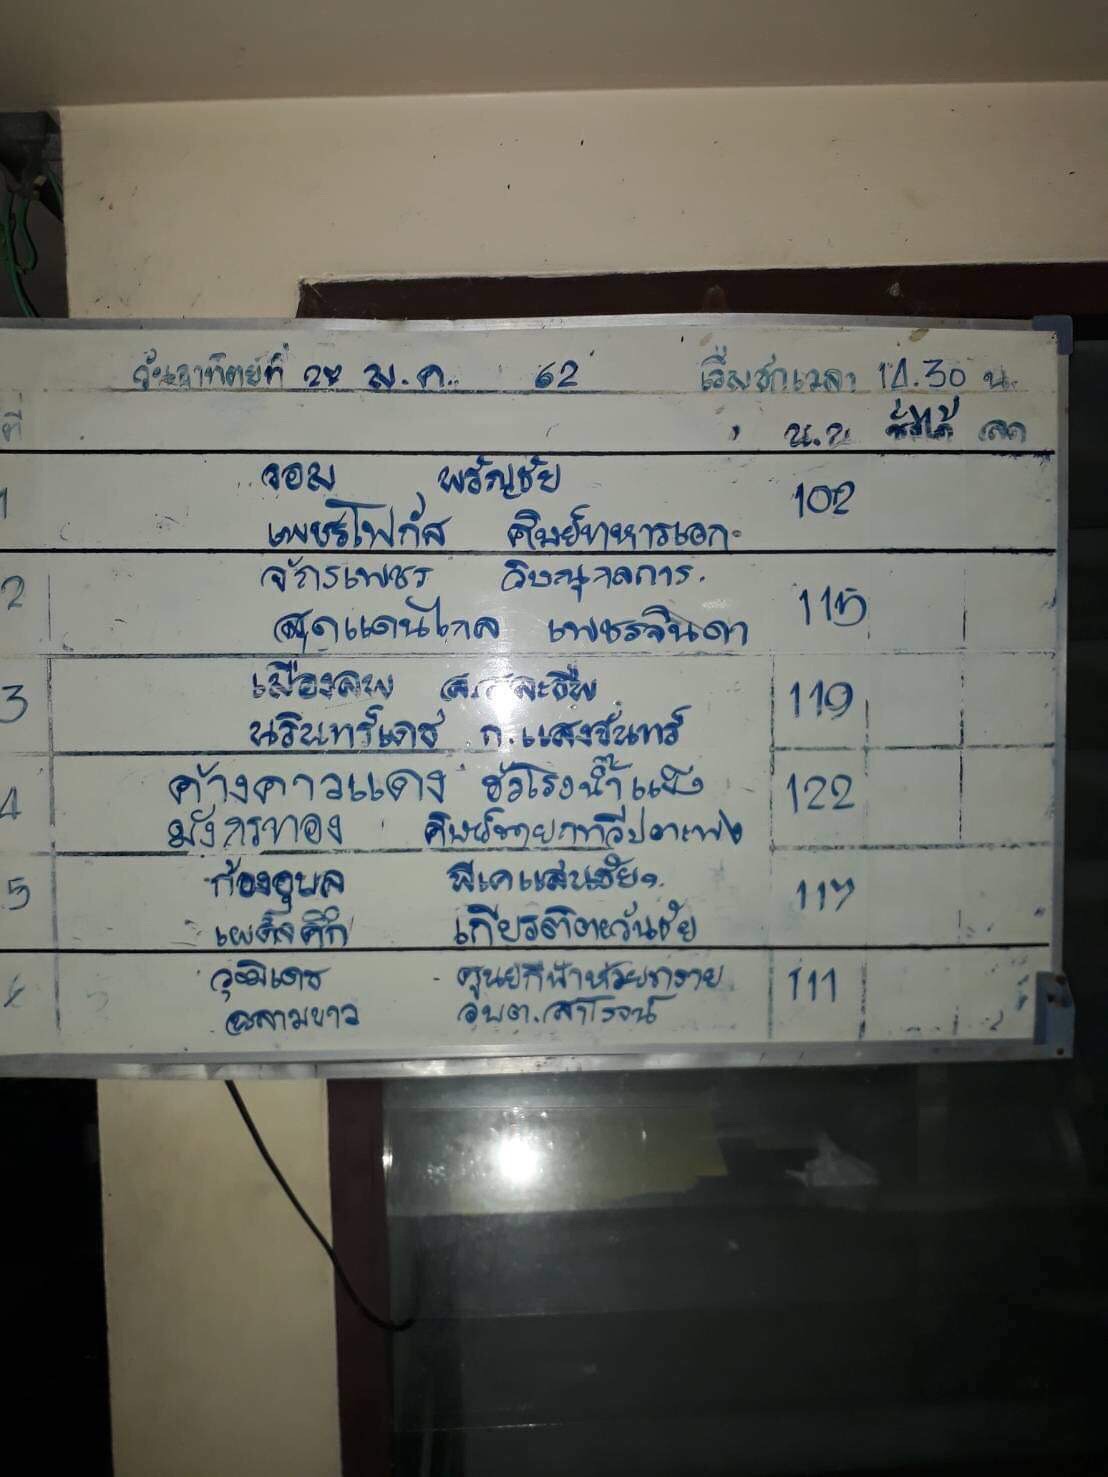 วันอาทิตย์ที่ ม.ค. 62 เริ่มชกเวลา 14.30 น.
ที่ น.น ชั่งได้ ลด
1 จอม พรัญชัย 102
เพชรโฟกัส ศิษย์ทหารเอก
2 จักรเพชร วิษณุกลการ 115
สุดแดนไกล เพชรจินดา
3 เมืองลพ 119
นรินทร์เดช ก.แสงจันทร์
4 ค้างคาวแดง ชัวโรงน้ำแข็ง 122
มังกรทอง
5 ก้องอุบล พีเคแสนชัยฯ 117
เพด็จศึก เกียรติตะวันชัย
วุฒิเดช ศูนย์กีฬาห้วยทราย 111
ฉลามขาว อบต.สาโรจน์